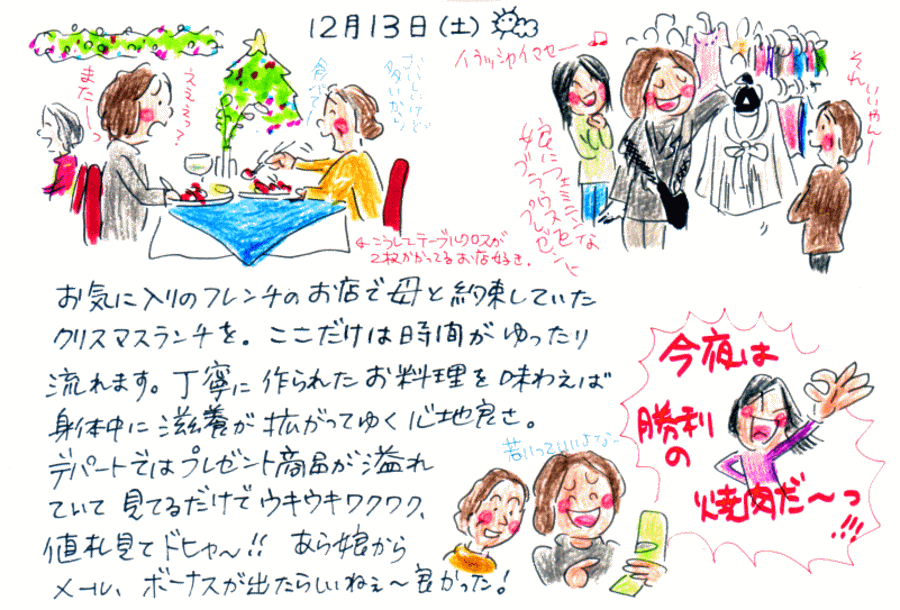 12月13日(土)
えええっ?
またーっ
おいしいけど
多いから
食べて!
イラッシャイマセー♫
それ
いいやんー
娘にフェミニンな
ブラウスを
プレゼント
←こうしてテーブルクロスが
2枚かかってるお店好き.
お気に入りのフレンチのお店で母と約束していた
クリスマスランチを。ここだけは時間がゆったり
流れます。丁寧に作られたお料理を味わえば
身体中に滋養が拡がってゆく心地良さ。
デパートではプレゼント商品が溢れ
ていて見てるだけでウキウキワクワク、
値札見てドヒャ〜!! あら娘から
メール、ボーナスが出たらしいねぇ〜良かった!
若いっていいよなー
今夜は
勝利
の
焼肉だ〜っ
!!!